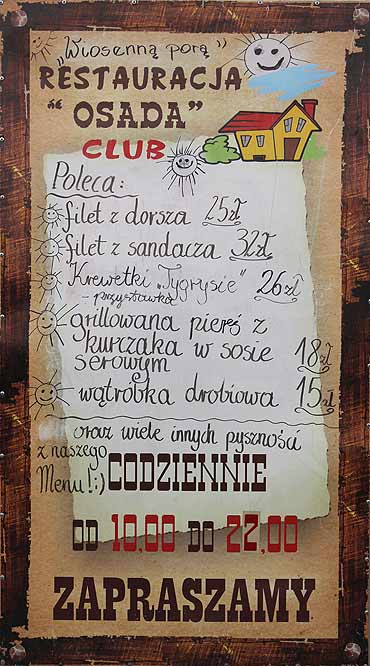 „Wiosenną porą”
RESTAURACJA
“ OSADA”
CLUB
Poleca:
filet z dorsza 25zł
filet z sandacza 32zł
Krewetki „Tygrysie” 26zł
- przystawka
grillowana pierś z
kurczaka w sosie 18zł
serowym
wątróbka drobiowa 15zł
oraz wiele innych pyszności
z naszego
Menu!:)
CODZIENNIE
OD 10,00 DO 22,00
ZAPRASZAMY